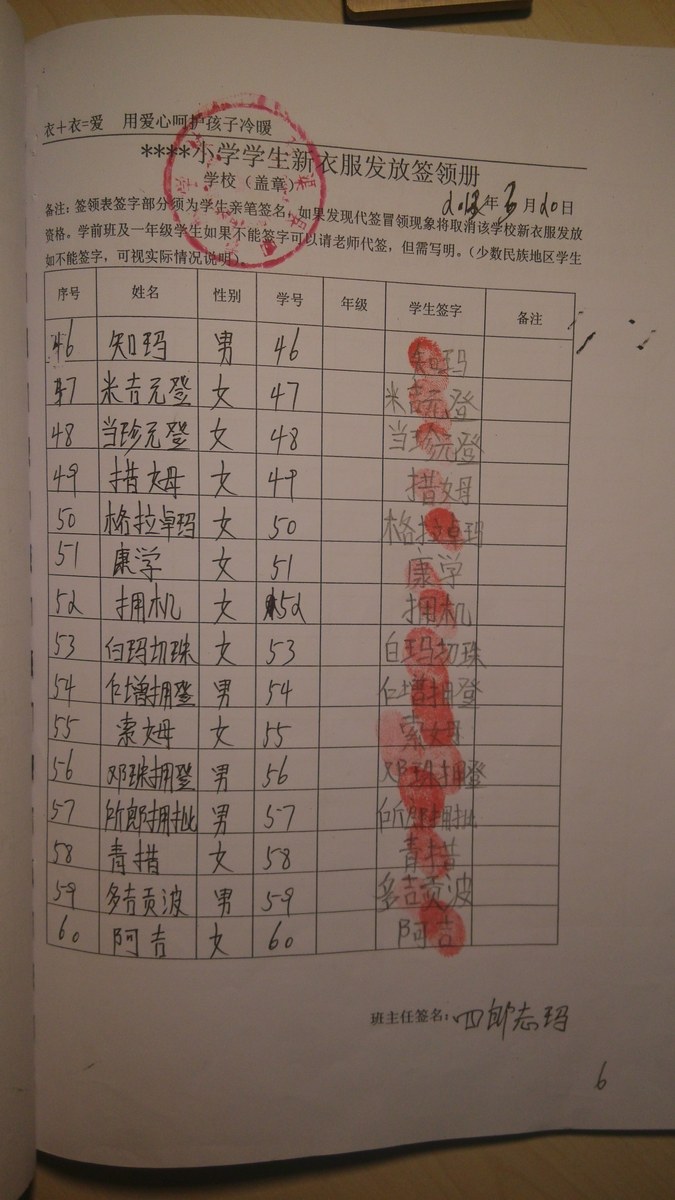 衣+衣=爱 用爱心呵护孩子冷暖
****小学学生新衣服发放签领册
学校（盖章）
年 月20日
备注：签领表签字部分须为学生亲笔签名，如果发现代签冒领现象将取消该学校新衣服发放
资格。学前班及一年级学生如果不能签字可以请老师代签，但需写明。（少数民族地区学生
如不能签字，可视实际情况说明）。
序号 姓名 性别 学号 年级 学生签字 备注
46 知玛 男 46 知玛
47 米吉元登 女 47 米吉元登
48 当珍元登 女 48 当珍元登
49 措姆 女 49 措姆
50 格拉卓玛 女 50 格拉卓玛
51 康学 女 51 康学
52 拥机 女 52 拥机
53 白玛初珠 女 53 白玛初珠
54 仁增拥登 男 54 仁增拥登
55 索姆 女 55 索姆
56 邓珠拥登 男 56 邓珠拥登
57 郎拥批 男 57 郎拥批
58 青措 女 58 青措
59 多吉贡波 男 59 多吉贡波
60 阿吉 女 60 阿吉
班主任签名：四郎志玛
6